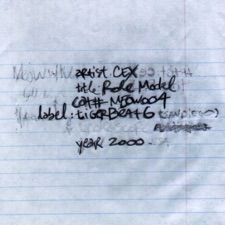 artist. CEX
title Role Model
cat# MEOW004
label: tiGERBEAT6 (SANDIEGO)
year 2000.